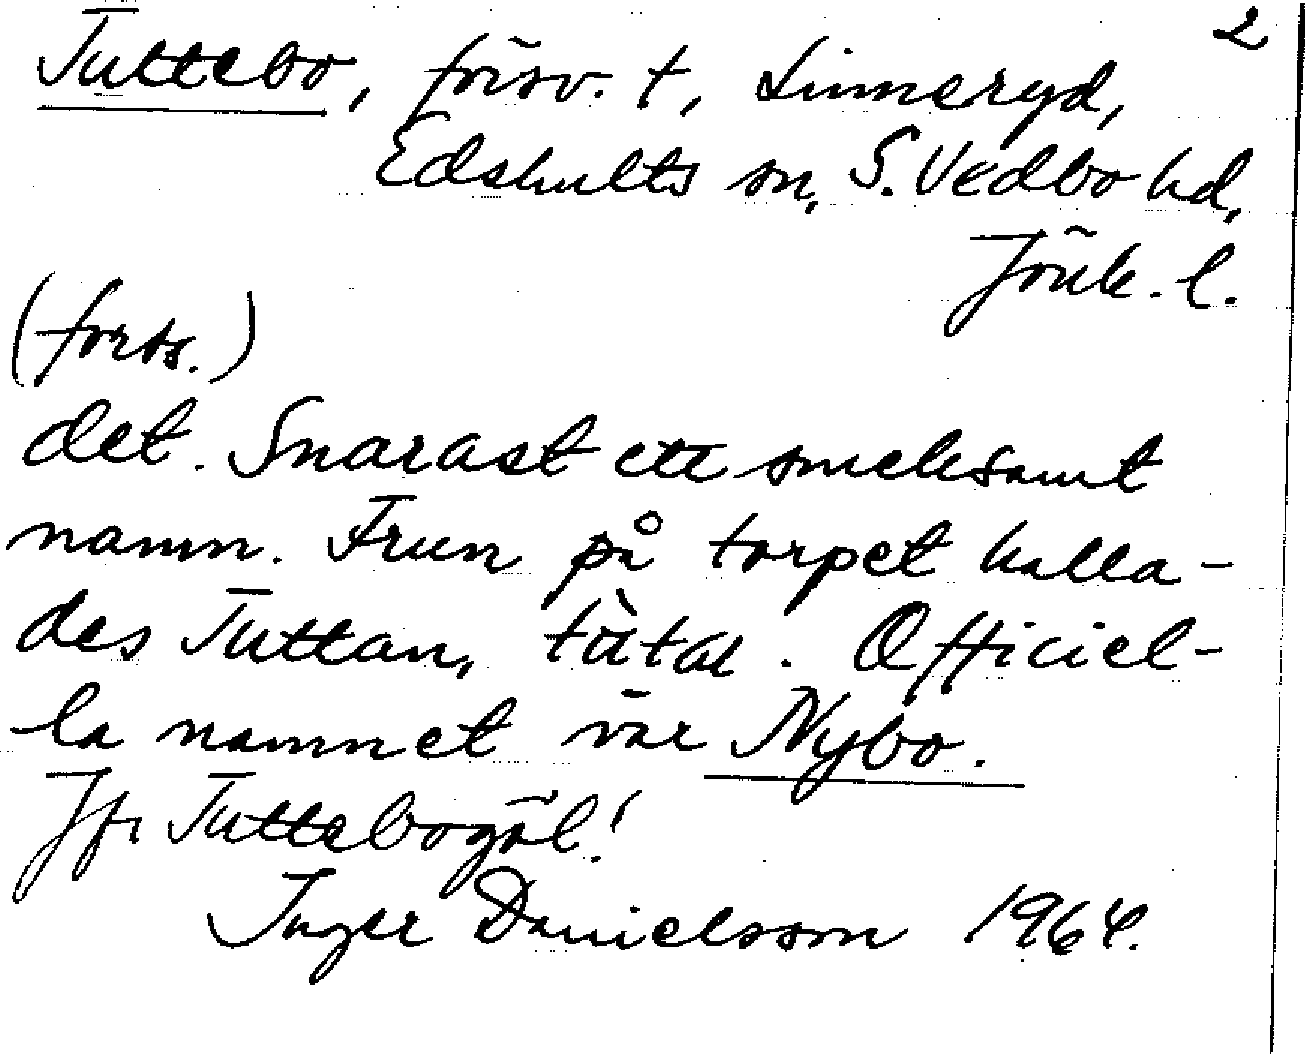 2
Tuttebo, försv. t, Linneryd,
Edshults sn, S. Vedbo hd,
Jönk. l.
(forts.)
det. Snarast ett smeksamt
namn. Frun på torpet kalla-
des Tuttan, . Officiel-
la namnet var Nybo.
Jfr Tuttebogöl!
Inger Danielsson 1964.